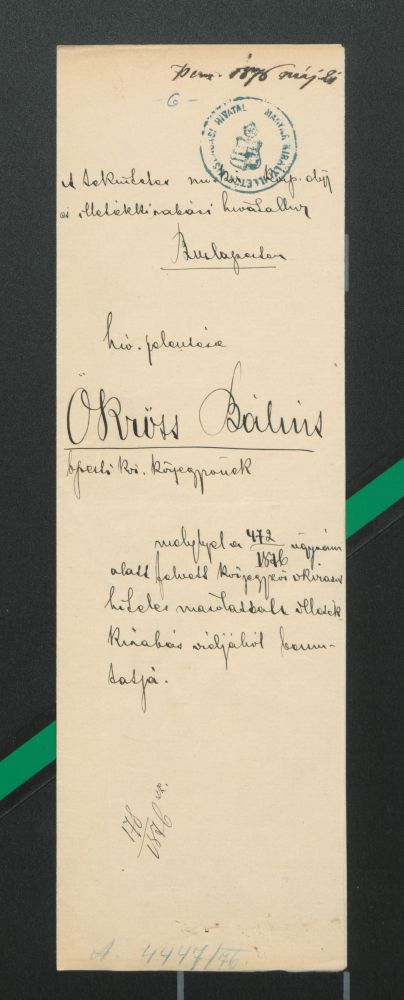 1876 máj
- 6 -
MAGYAR KIRÁLYI HIVATAL
A tekintetes m. kir. közp. díj
és illetékkiszabási hivatalhoz
Budapesten
hiv. jelentése
Ökröss Bálint
bpesti kir. közjegyzőnek
melylyel a 472/1876 ügyszám
alatt felvett közjegyzői okiratot
hiteles másolatban illeték
kiszabás céljából bemu-
tatja.
178/1876
A. 4447/76.